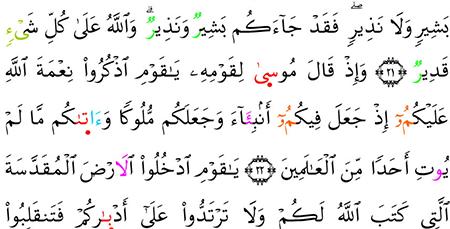 بَشِيرٖ وَلَا نَذِيرٖۖ فَقَدۡ جَآءَكُم بَشِيرٞ وَنَذِيرٞۗ وَٱللَّهُ عَلَىٰ كُلِّ شَيۡءٖ
قَدِيرٞ ٢١ وَإِذۡ قَالَ مُوسَىٰ لِقَوۡمِهِۦ يَٰقَوۡمِ ٱذۡكُرُواْ نِعۡمَةَ ٱللَّهِ
عَلَيۡكُمُۥٓ إِذۡ جَعَلَ فِيكُمُۥٓ أَنۢبِئَآءَ وَجَعَلَكُم مُّلُوكٗا وَءَاتَىٰكُم مَّا لَمۡ
يُوتِ أَحَدٗا مِّنَ ٱلۡعَٰلَمِينَ ٢٢ يَٰقَوۡمِ ٱدۡخُلُواْ ٱلَارۡضَ ٱلۡمُقَدَّسَةَ
ٱلَّتِي كَتَبَ ٱللَّهُ لَكُمۡ وَلَا تَرۡتَدُّواْ عَلَىٰٓ أَدۡبَٰرِكُمۡ فَتَنقَلِبُواْ